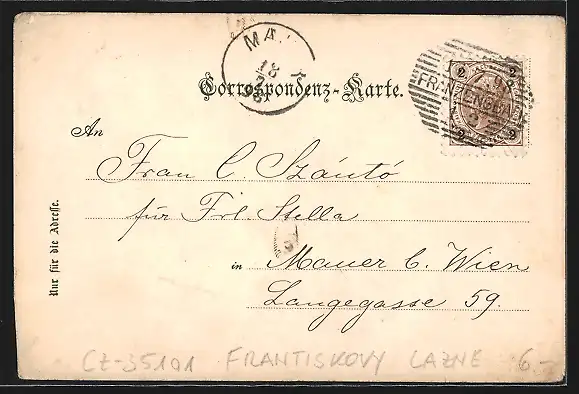 MA
18
7
98
Correspondenz-Karte.
2 2
FRANZENSB
2 2
An
Frau C. Szántó
für Frl. Stella
in Mauer b. Wien
Langegasse 59.
Nur für die Adresse.
CZ-35101 FRANTISKOVY LAZNE 6-